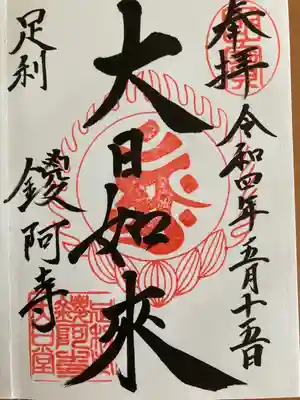 奉拝
令和四年五月十五日
大日如來
足利
鑁阿寺